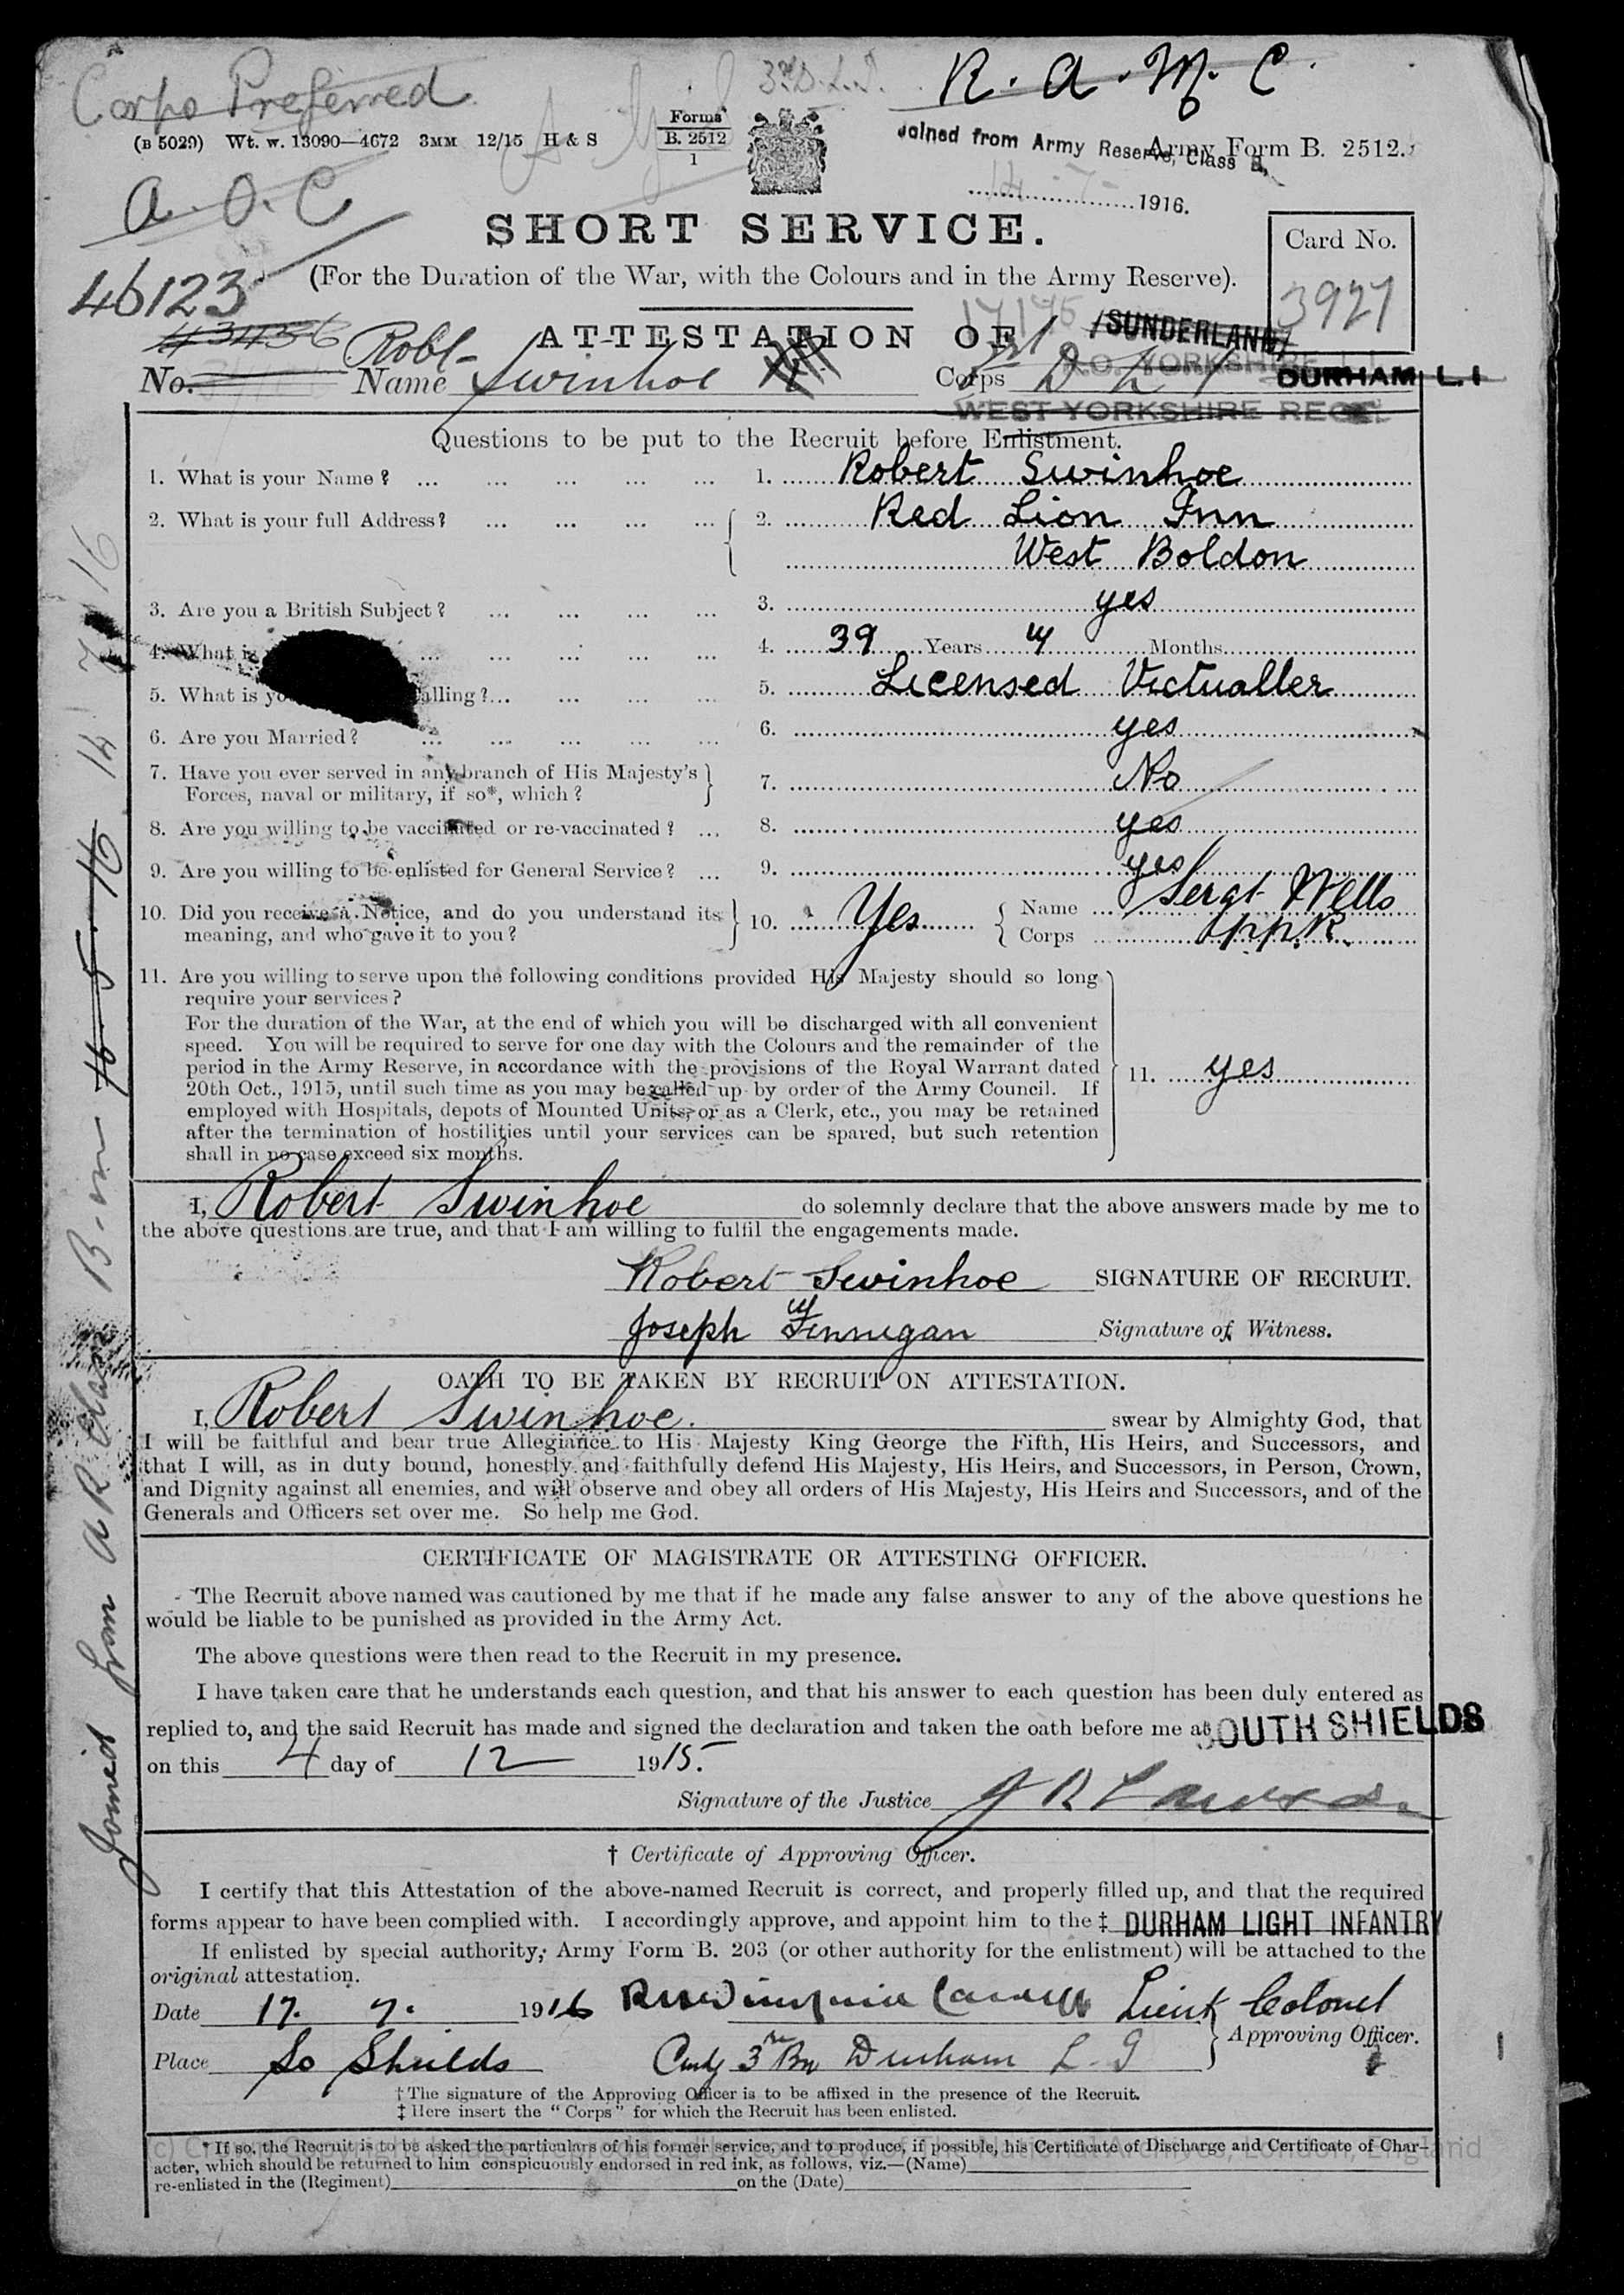 Corps Preferred
3rd D.L.I.
R. A. M. C.
(B 5029) Wt. w. 13090—4672 3MM 12/15 H & S
Forms
B. 2512
1
Joined from Army Reserve, Class B,
Army Form B. 2512.
14 - 7 - 1916.
A. O. C
SHORT SERVICE.
Card No.
3927
(For the Duration of the War, with the Colours and in the Army Reserve).
46123
43436
ATTESTATION OF
SUNDERLAND
No. Name Robt- Swinhoe Corps D L I
DURHAM L. I
WEST YORKSHIRE REGT.
Questions to be put to the Recruit before Enlistment.
1. What is your Name? ... 1. Robert Swinhoe
2. What is your full Address? ... 2. Red Lion Inn
West Boldon
3. Are you a British Subject? ... 3. yes
4. What is ... 4. 39 Years 4 Months
5. What is yo alling?... 5. Licensed Victualler
6. Are you Married? ... 6. yes
7. Have you ever served in any branch of His Majesty's
Forces, naval or military, if so*, which? 7. No
8. Are you willing to be vaccinated or re-vaccinated? ... 8. yes
9. Are you willing to be enlisted for General Service? ... 9. yes
10. Did you receive a Notice, and do you understand its
meaning, and who gave it to you? 10. Yes Name Sergt Wells
Corps
11. Are you willing to serve upon the following conditions provided His Majesty should so long
require your services?
For the duration of the War, at the end of which you will be discharged with all convenient
speed. You will be required to serve for one day with the Colours and the remainder of the
period in the Army Reserve, in accordance with the provisions of the Royal Warrant dated
20th Oct., 1915, until such time as you may be called up by order of the Army Council. If
employed with Hospitals, depots of Mounted Units, or as a Clerk, etc., you may be retained
after the termination of hostilities until your services can be spared, but such retention
shall in no case exceed six months.
11. yes
I, Robert Swinhoe do solemnly declare that the above answers made by me to
the above questions are true, and that I am willing to fulfil the engagements made.
Robert Swinhoe SIGNATURE OF RECRUIT.
Joseph Finnegan Signature of Witness.
OATH TO BE TAKEN BY RECRUIT ON ATTESTATION.
I, Robert Swinhoe. swear by Almighty God, that
I will be faithful and bear true Allegiance to His Majesty King George the Fifth, His Heirs, and Successors, and
that I will, as in duty bound, honestly and faithfully defend His Majesty, His Heirs, and Successors, in Person, Crown,
and Dignity against all enemies, and will observe and obey all orders of His Majesty, His Heirs and Successors, and of the
Generals and Officers set over me. So help me God.
CERTIFICATE OF MAGISTRATE OR ATTESTING OFFICER.
The Recruit above named was cautioned by me that if he made any false answer to any of the above questions he
would be liable to be punished as provided in the Army Act.
The above questions were then read to the Recruit in my presence.
I have taken care that he understands each question, and that his answer to each question has been duly entered as
replied to, and the said Recruit has made and signed the declaration and taken the oath before me at SOUTH SHIELDS
on this 4 day of 12 1915.
Signature of the Justice J R Lawson
† Certificate of Approving Officer.
I certify that this Attestation of the above-named Recruit is correct, and properly filled up, and that the required
forms appear to have been complied with. I accordingly approve, and appoint him to the ‡ DURHAM LIGHT INFANTRY
If enlisted by special authority, Army Form B. 203 (or other authority for the enlistment) will be attached to the
original attestation.
Date 17. 7. 1916 Lieut Colonel
Approving Officer.
Place So Shields Comdg 3rd Bn Durham L. I
† The signature of the Approving Officer is to be affixed in the presence of the Recruit.
‡ Here insert the "Corps" for which the Recruit has been enlisted.
* If so, the Recruit is to be asked the particulars of his former service, and to produce, if possible, his Certificate of Discharge and Certificate of Char-
acter, which should be returned to him conspicuously endorsed in red ink, as follows, viz.—(Name)
re-enlisted in the (Regiment) on the (Date)
Joined from A R Class B. 14 7 16